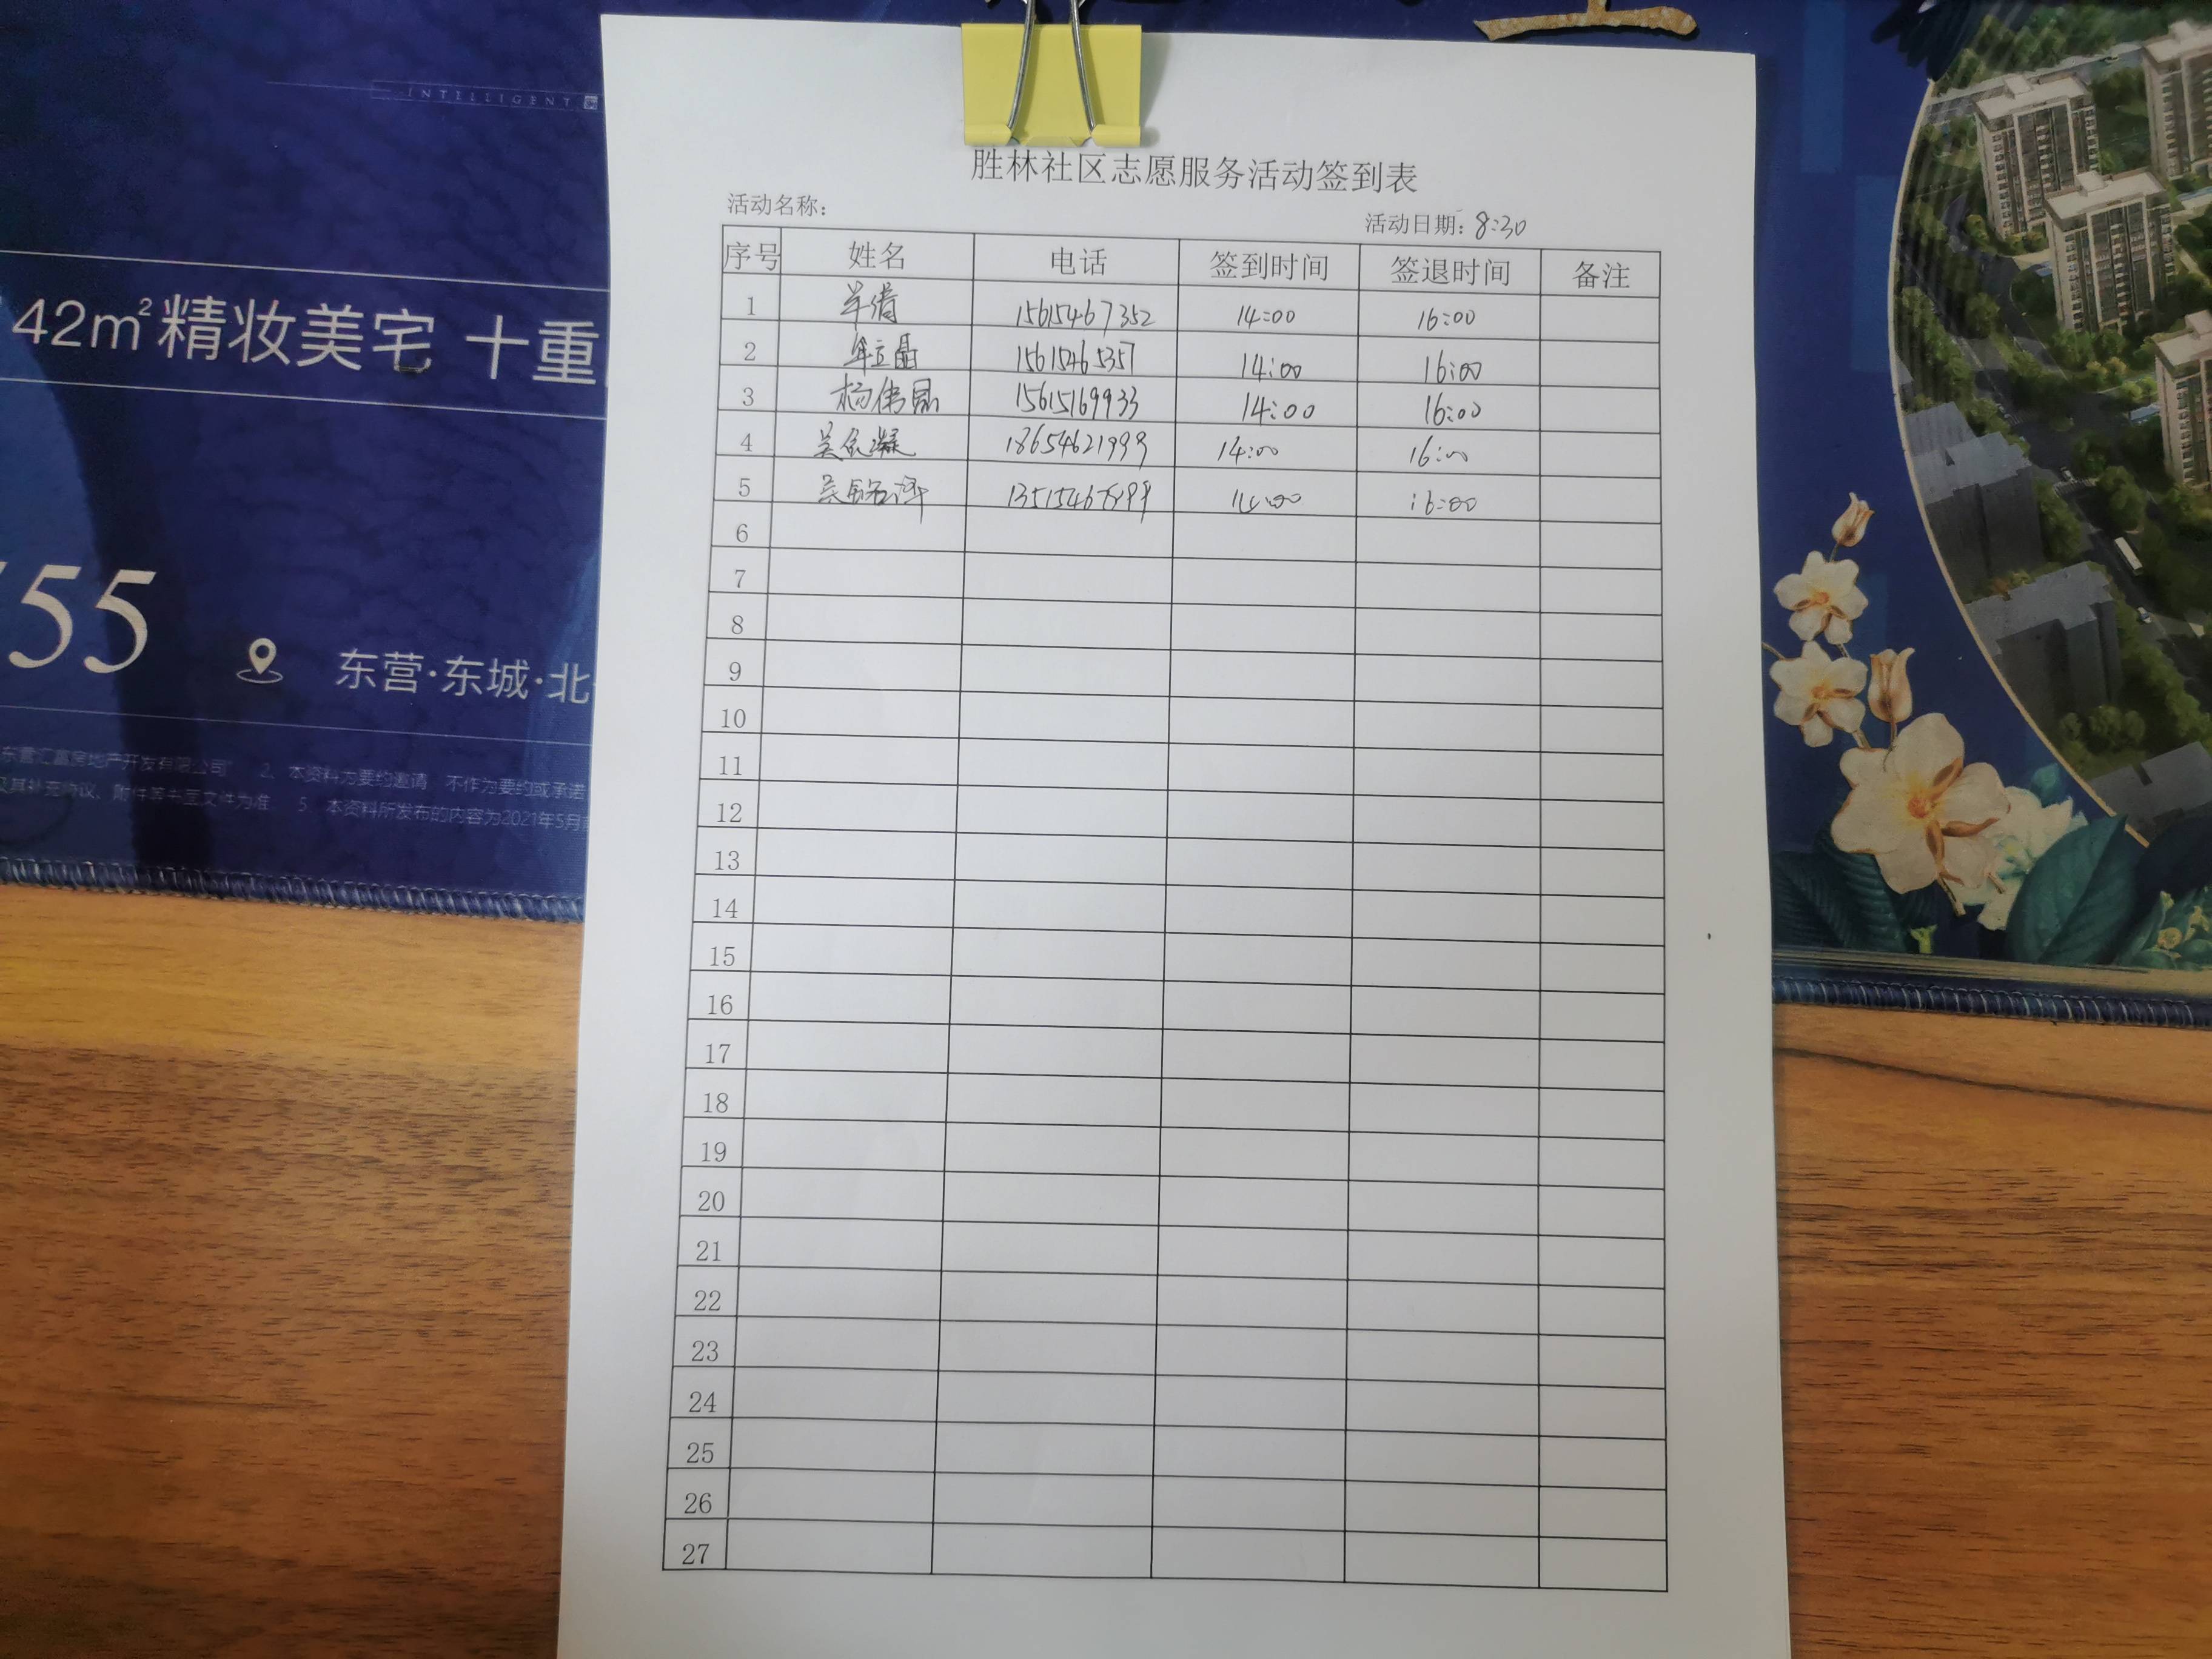 INTELLIGENT
42m²精妆美宅 十重
55
东营·东城·北
东营汇富房地产开发有限公司 2、本资料为要约邀请 不作为要约或承诺
及其补充协议、附件等书面文件为准 5、本资料所发布的内容为2021年5月
胜林社区志愿服务活动签到表
活动名称: 活动日期: 8:30
序号 姓名 电话 签到时间 签退时间 备注
1 15615467352 14:00 16:00
2 15615465357 14:00 16:00
3 杨伟 15615169933 14:00 16:00
4 吴依凝 18654621999 14:00 16:00
5 14:00 16:00
6
7
8
9
10
11
12
13
14
15
16
17
18
19
20
21
22
23
24
25
26
27